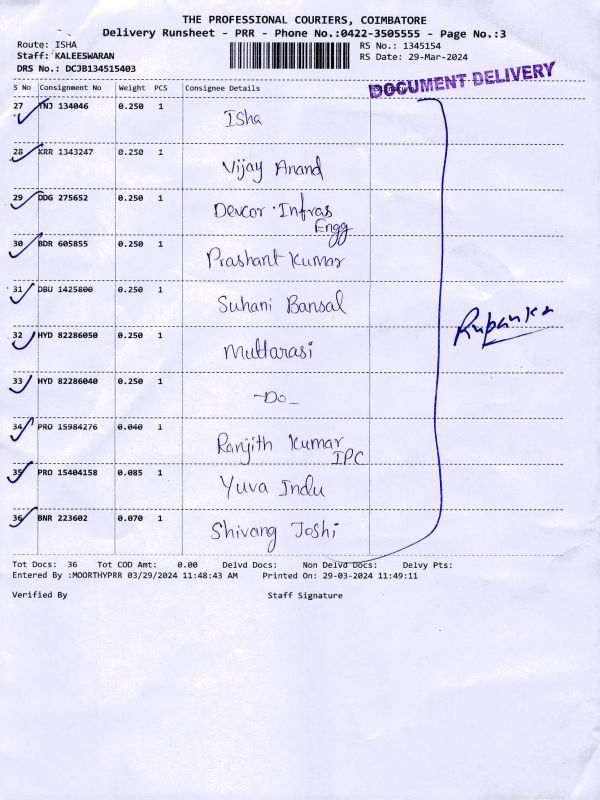 THE PROFESSIONAL COURIERS, COIMBATORE
Delivery Runsheet - PRR - Phone No.:0422-3505555 - Page No.:3
Route: ISHA
Staff: KALEESWARAN
DRS No.: DCJB134515403
RS No.: 1345154
RS Date: 29-Mar-2024
DOCUMENT DELIVERY
S No Consignment No Weight PCS Consignee Details
27 TNJ 134046 0.250 1 Isha
28 KRR 1343247 0.250 1 Vijay Anand
29 DDG 275652 0.250 1 Devcor. Infras
Engg
30 BDR 605855 0.250 1 Prashant Kumar
31 DBU 1425800 0.250 1 Suhani Bansal
32 HYD 82286050 0.250 1 Muttarasi
33 HYD 82286040 0.250 1 -Do-
34 PRO 15984276 0.040 1 Ranjith Kumar
IPC
35 PRO 15404158 0.085 1 Yuva Indu
36 BNR 223602 0.070 1 Shivang Joshi
Rupanka
Tot Docs: 36 Tot COD Amt: 0.00 Delvd Docs: Non Delvd Docs: Delvy Pts:
Entered By :MOORTHYPRR 03/29/2024 11:48:43 AM Printed On: 29-03-2024 11:49:11
Verified By Staff Signature